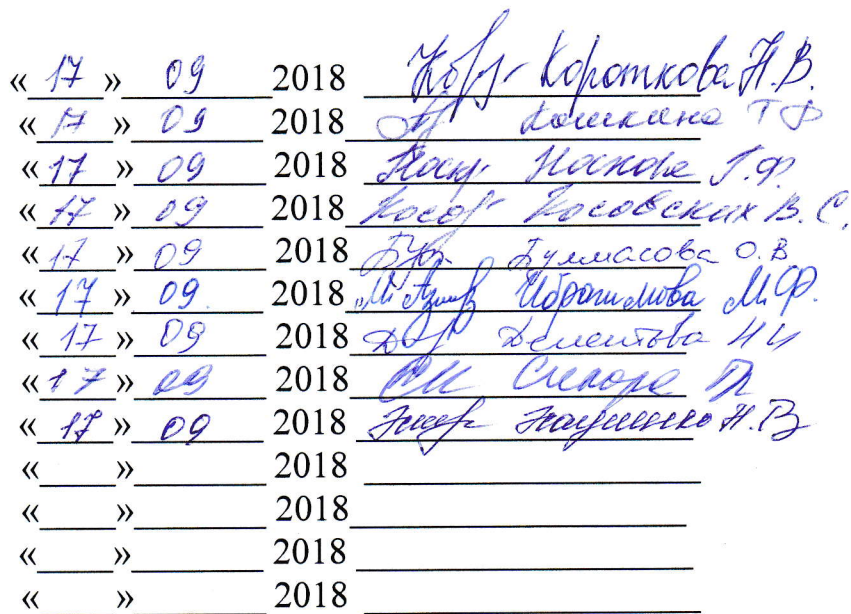 « 17 » 09 2018 Короткова Н.В.
« 17 » 09 2018 Кошкина Т Ф
« 17 » 09 2018 Носкова Г.Ф.
« 17 » 09 2018 Косовских В.С.
« 17 » 09 2018 Булмасова О.В
« 17 » 09. 2018 Ибрагимова М.Ф.
« 17 » 09 2018 Дементьева Н И
« 17 » 09 2018
« 17 » 09 2018 Н.В
« » 2018
« » 2018
« » 2018
« » 2018